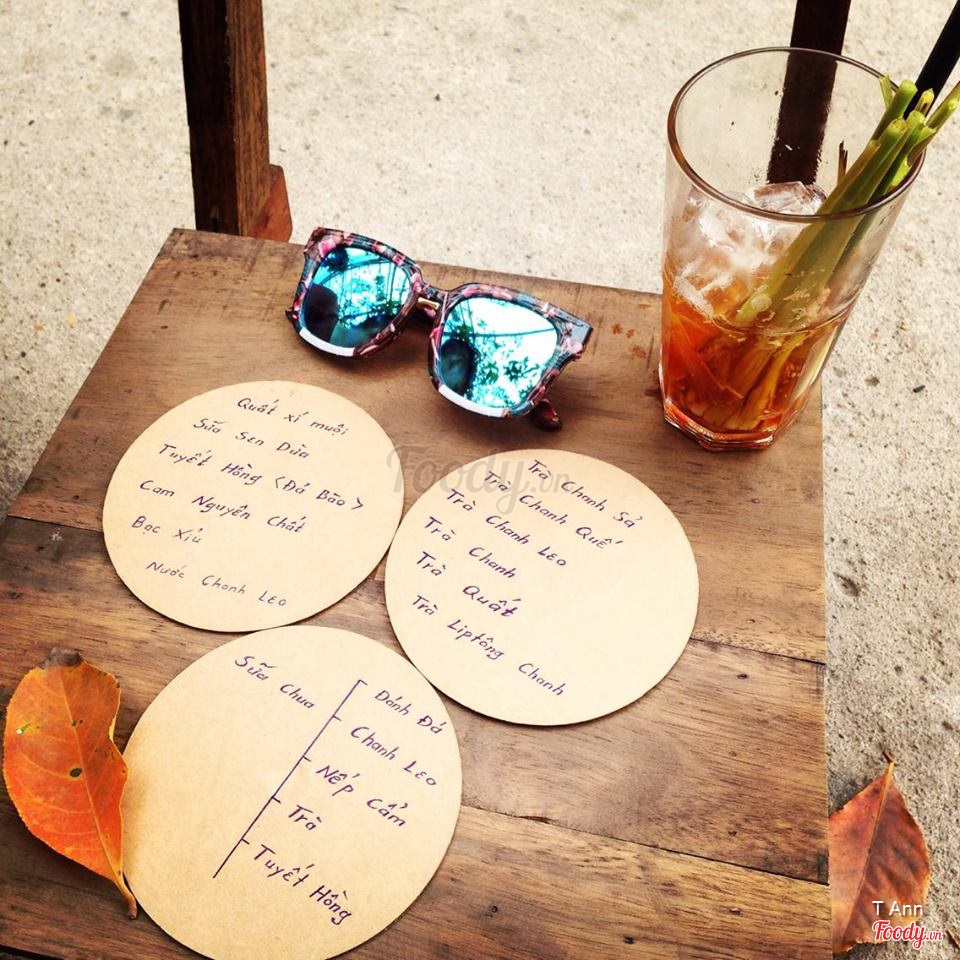 Quất xí muội
Sữa Sen Dừa
Tuyết Hồng <Đá Bào>
Cam Nguyên Chất
Bạc Xỉu
Nước Chanh Leo
Trà Chanh Sả
Trà Chanh Quế
Trà Chanh Leo
Trà Chanh
Trà Quất
Trà Liptông Chanh
Sữa Chua
Đánh Đá
Chanh Leo
Nếp Cẩm
Trà
Tuyết Hồng
Foody.vn
T Ann
Foody.vn